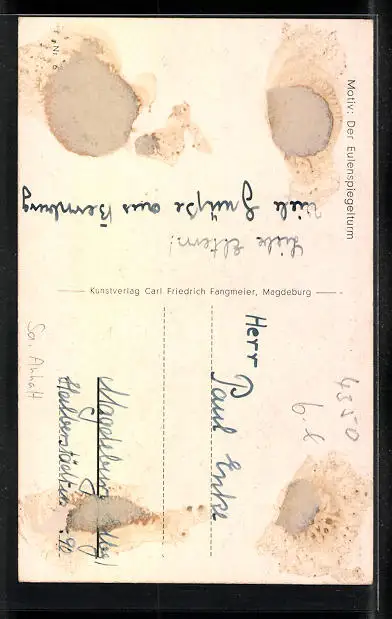 Motiv: Der Eulenspiegelturm
Nr. 6
Liebe Eltern!
Viele Grüße aus Bernburg
Kunstverlag Carl Friedrich Fangmeier, Magdeburg
4350
6.-
Herr
Paul Enke
Magdeburg
Halberstädterstr. 90
Sa. Anhalt